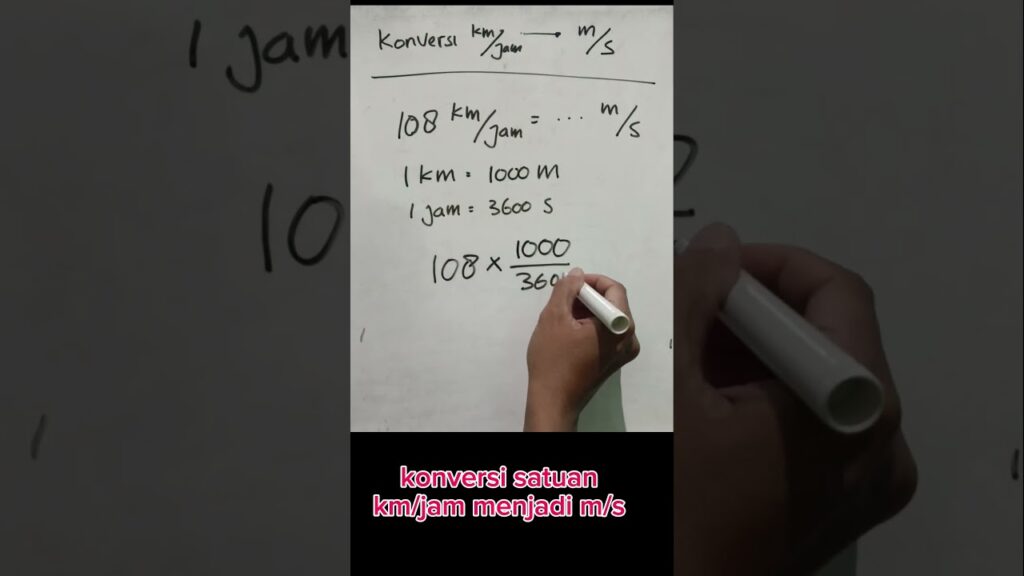 Konversi km/jam → m/s
108 km/jam = ... m/s
1 km = 1000 m
1 jam = 3600 s
108 × 1000/360
konversi satuan
km/jam menjadi m/s
1 jam
10